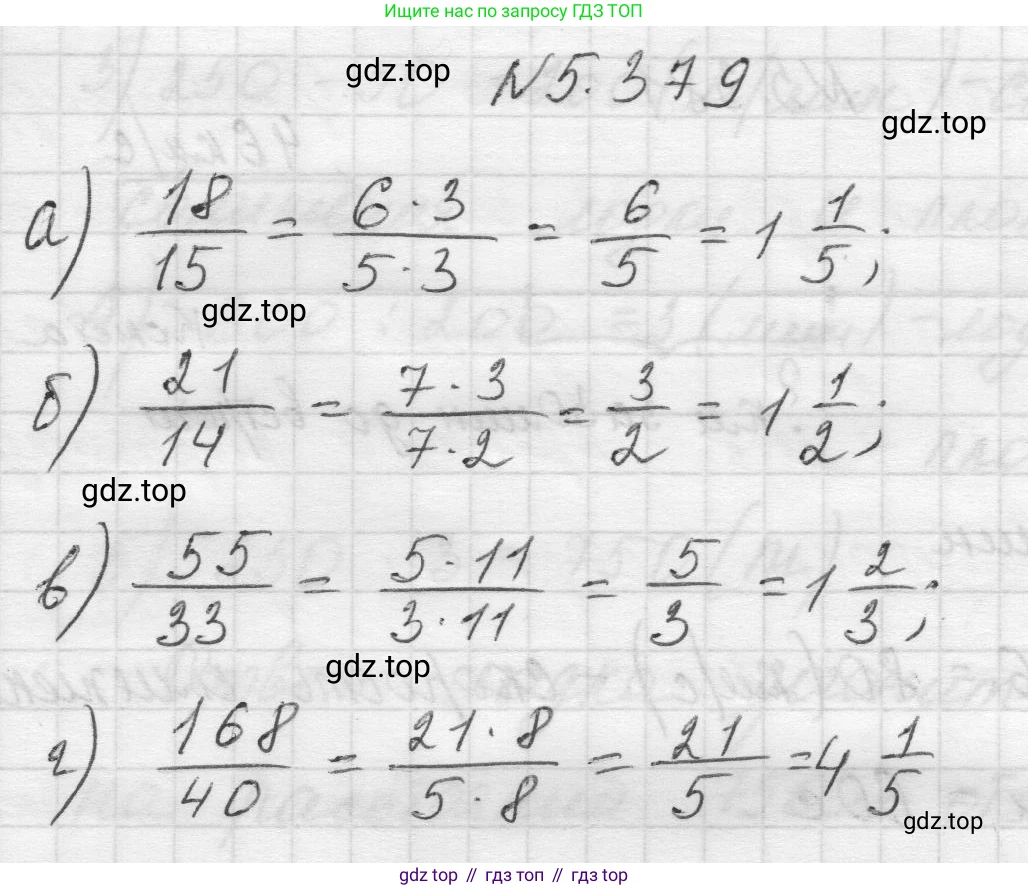 Ищите нас по запросу ГДЗ ТОП
gdz.top
№ 5.379
gdz.top
а) 18/15 = 6·3/5·3 = 6/5 = 1 1/5;
gdz.top
б) 21/14 = 7·3/7·2 = 3/2 = 1 1/2;
gdz.top
в) 55/33 = 5·11/3·11 = 5/3 = 1 2/3;
gdz.top
г) 168/40 = 21·8/5·8 = 21/5 = 4 1/5
gdz.top
gdz.top // гдз топ // gdz top